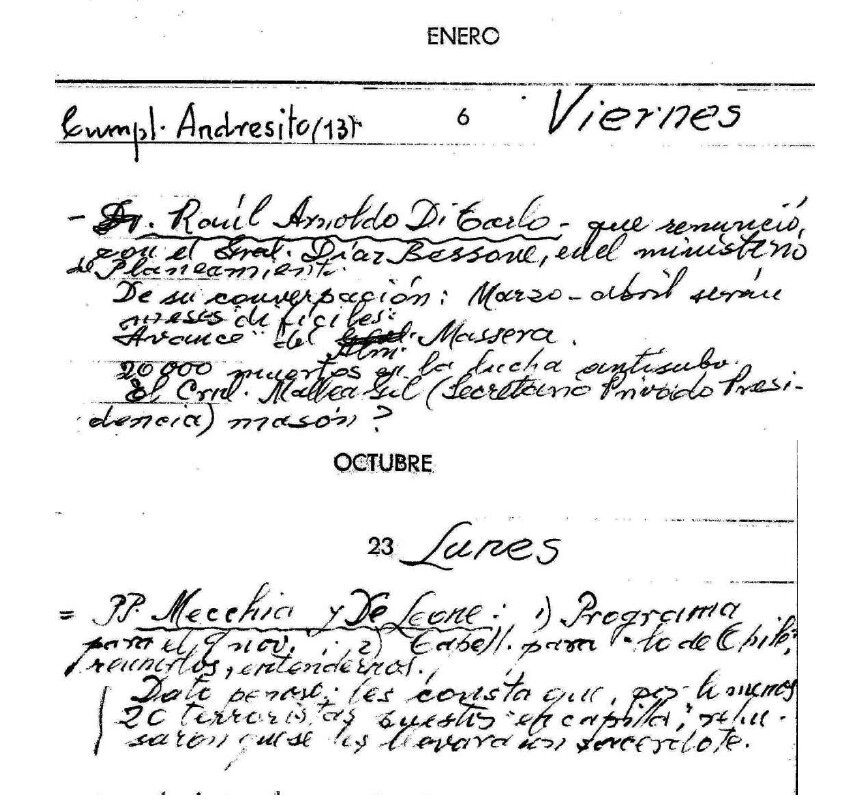 ENERO
Cumpl. Andresito (13) 6 Viernes
- Dr. Raúl Arnoldo Di Carlo - que renunció,
con el Gral. Díaz Bessone, en el ministerio
de Planeamiento.
De su conversación: Marzo - abril serán
meses difíciles:
Avance del Alm. Massera.
20 000 muertos en la lucha antisubv.
El Crnl. Mallea Gil (Secretario Privado Presi-
dencia) masón?
OCTUBRE
23 Lunes
= PP. Mecchia y De Leone: 1) Programa
para el 9 nov.; 2) Capell. para lo de Chile;
reunirlos, entendernos.
Dato penoso: les consta que, por lo menos
20 terroristas puestos en capilla, rehu-
saron que se les llevara un sacerdote.